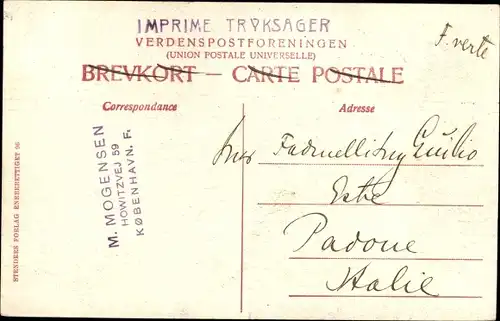 IMPRIME TRYKSAGER
F. verte
VERDENSPOSTFORENINGEN
(UNION POSTALE UNIVERSELLE)
BREVKORT — CARTE POSTALE
Correspondance
Adresse
M. MOGENSEN
HOWITZVEJ 59
KØBENHAVN. F.
STENDERS FORLAG ENEBERETTIGET 96
Giulio
Este
Padoue
Italie